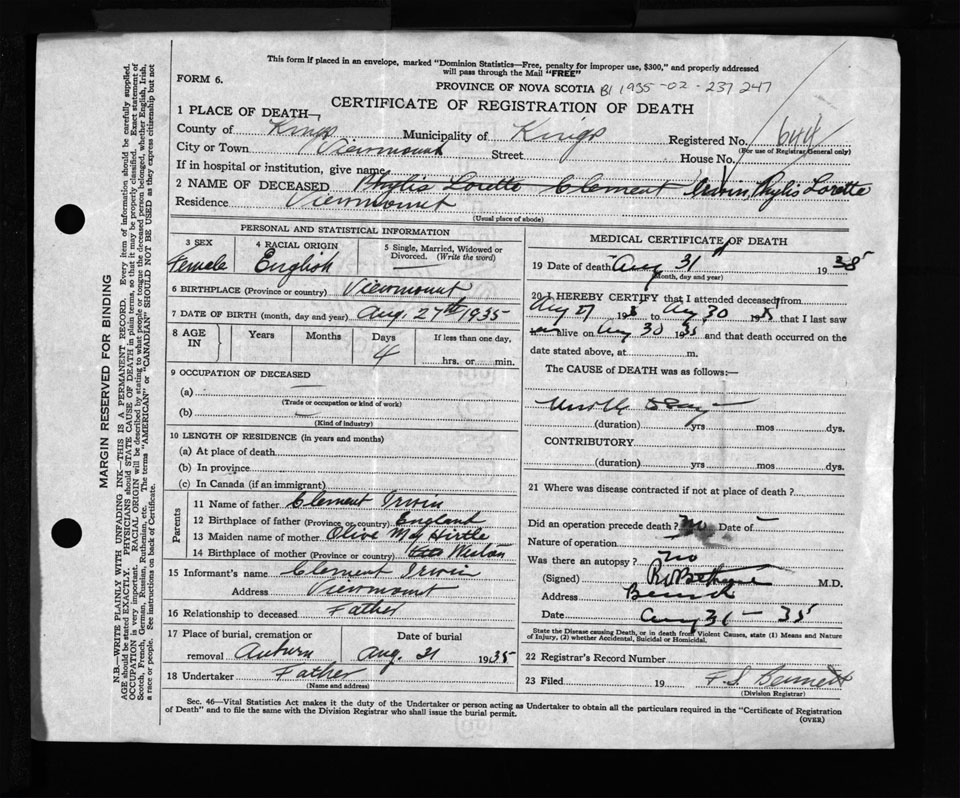 This form if placed in an envelope, marked "Dominion Statistics—Free, penalty for improper use, $300," and properly addressed
will pass through the Mail "FREE"
FORM 6.
PROVINCE OF NOVA SCOTIA B1 1935-02-237 247
CERTIFICATE OF REGISTRATION OF DEATH
1 PLACE OF DEATH—
County of Kings Municipality of Kings Registered No. 644
(For use of Registrar General only)
City or Town Viewmount Street House No.
If in hospital or institution, give name
2 NAME OF DECEASED Phylis Lorette Clement Irwin, Phylis Lorette
Residence Viewmount
(Usual place of abode)
PERSONAL AND STATISTICAL INFORMATION
3 SEX 4 RACIAL ORIGIN 5 Single, Married, Widowed or Divorced. (Write the word)
Female English —
6 BIRTHPLACE (Province or country) Viewmount
7 DATE OF BIRTH (month, day and year) Aug. 27th 1935
8 AGE IN Years Months Days If less than one day,
4 hrs. or min.
9 OCCUPATION OF DECEASED
(a) —
(Trade or occupation or kind of work)
(b) —
(Kind of industry)
10 LENGTH OF RESIDENCE (in years and months)
(a) At place of death
(b) In province
(c) In Canada (if an immigrant)
Parents
11 Name of father Clement Irwin
12 Birthplace of father (Province or country) England
13 Maiden name of mother Olive May Hirtle
14 Birthplace of mother (Province or country)
15 Informant's name Clement Irwin
Address Viewmount
16 Relationship to deceased Father
17 Place of burial, cremation or Date of burial
removal Auburn Aug. 31 1935
18 Undertaker Father
(Name and address)
MEDICAL CERTIFICATE OF DEATH
19 Date of death Aug 31 1935
(Month, day and year)
20 I HEREBY CERTIFY that I attended deceased from
Aug 27 193 to Aug 30 193 that I last saw
alive on Aug 30 1935 and that death occurred on the
date stated above, at m.
The CAUSE of DEATH was as follows:—
(duration) yrs mos dys.
CONTRIBUTORY
(duration) yrs mos dys.
21 Where was disease contracted if not at place of death?
Did an operation precede death? No Date of —
Nature of operation
Was there an autopsy? No
(Signed) M.D.
Address Berwick
Date Aug 31 — 35
State the Disease causing Death, or in death from Violent Causes, state (1) Means and Nature
of Injury, (2) whether Accidental, Suicidal or Homicidal.
22 Registrar's Record Number
23 Filed 19 F. S. Bennett
(Division Registrar)
Sec. 46—Vital Statistics Act makes it the duty of the Undertaker or person acting as Undertaker to obtain all the particulars required in the "Certificate of Registration
of Death" and to file the same with the Division Registrar who shall issue the burial permit.
(OVER)
MARGIN RESERVED FOR BINDING
N.B.—WRITE PLAINLY WITH UNFADING INK—THIS IS A PERMANENT RECORD. Every item of information should be carefully supplied.
AGE should be stated EXACTLY. PHYSICIANS should STATE CAUSE OF DEATH in plain terms, so that it may be properly classified. Exact statement of
OCCUPATION is very important. RACIAL ORIGIN will be described by stating to what people or tongue the deceased person belonged, whether English, Irish,
Scotch, French, German, Russian, Ruthenian, etc. The terms "AMERICAN" or "CANADIAN" SHOULD NOT BE USED as they express citizenship but not
a race or people. See instructions on back of Certificate.